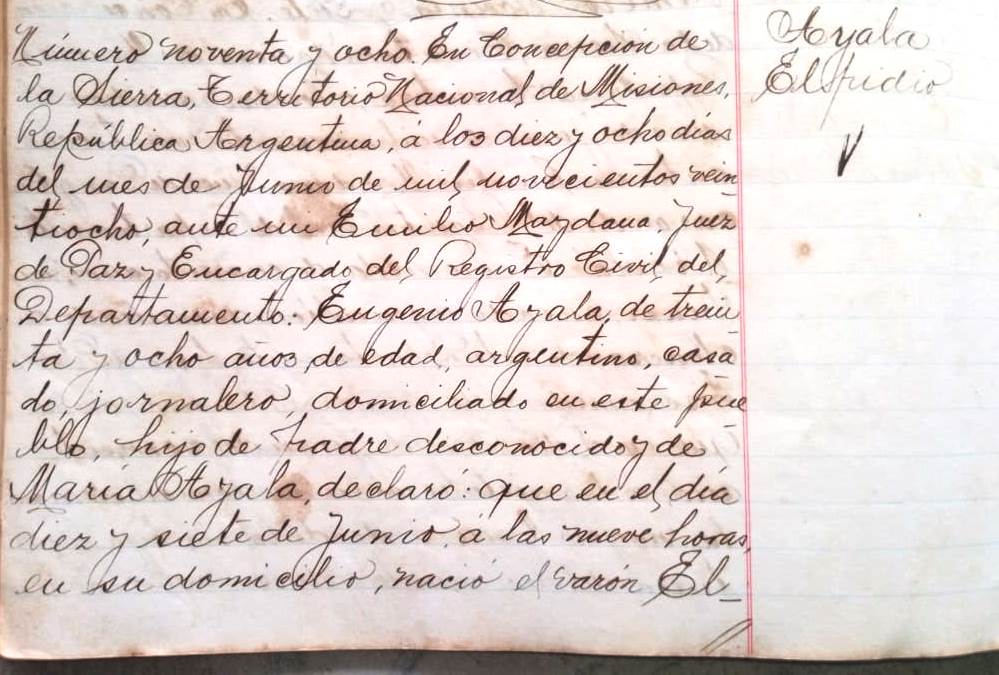 Número noventa y ocho. En Concepción de
la Sierra, Territorio Nacional de Misiones,
República Argentina, á los diez y ocho días
del mes de Junio de mil novecientos vein
tiocho, ante mi Emilio Maydana, Juez
de Paz y Encargado del Registro Civil del
Departamento: Eugenio Ayala, de trein
ta y ocho años de edad, argentino, casa
do, jornalero, domiciliado en este pue
blo, hijo de padre desconocido y de
María Ayala, declaró: que en el día
diez y siete de Junio á las nueve horas,
en su domicilio, nació el varón El_
Ayala
Elpidio